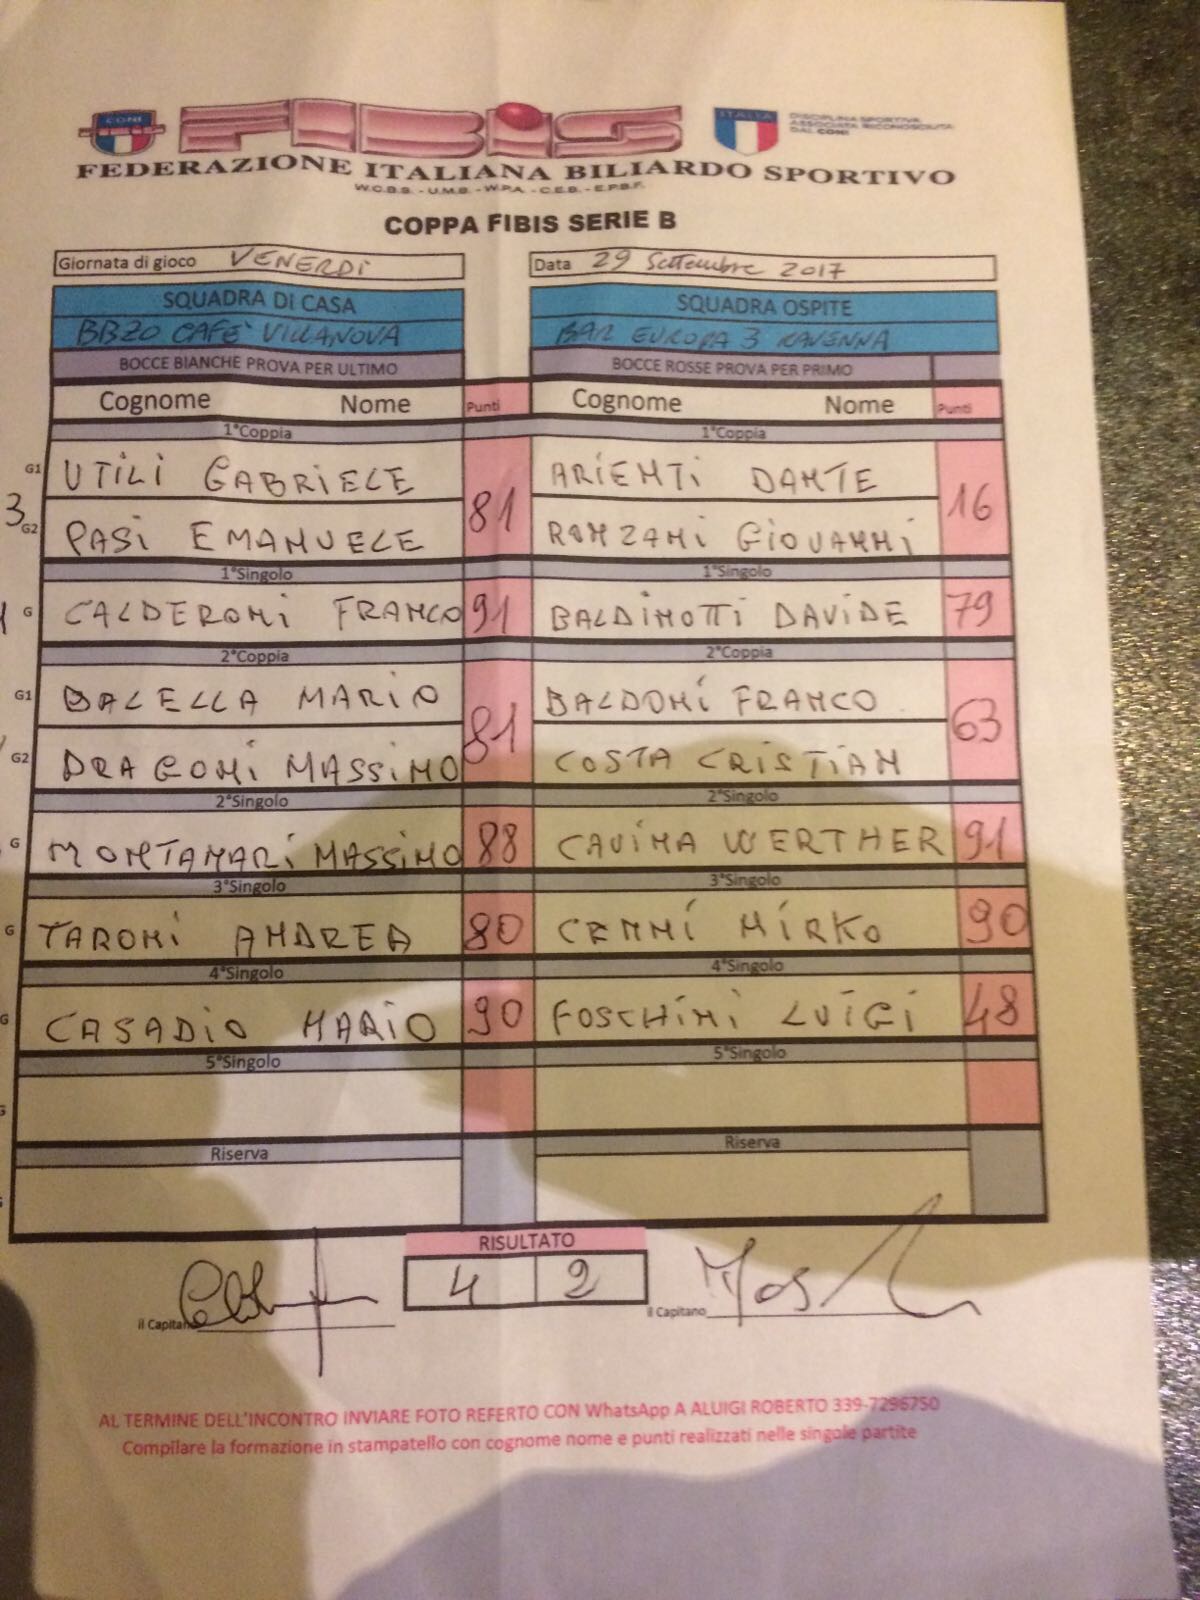 CONI FIBIS ITALIA DISCIPLINA SPORTIVA
ASSOCIATA RICONOSCIUTA
DAL CONI
FEDERAZIONE ITALIANA BILIARDO SPORTIVO
W.C.B.S. - U.M.B. - W.P.A. - C.E.B. - E.P.B.F.
COPPA FIBIS SERIE B
Giornata di gioco VENERDI Data 29 Settembre 2017
SQUADRA DI CASA SQUADRA OSPITE
BBZO CAFE' VILLANOVA BAR EUROPA 3 RAVENNA
BOCCE BIANCHE PROVA PER ULTIMO BOCCE ROSSE PROVA PER PRIMO
Cognome Nome Punti Cognome Nome Punti
1°Coppia 1°Coppia
G1 UTILI GABRIELE ARIENTI DANTE
3 81 16
G2 PASI EMANUELE RONZANI GIOVANNI
1°Singolo 1°Singolo
G CALDERONI FRANCO 91 BALDINOTTI DAVIDE 79
2°Coppia 2°Coppia
G1 BALELLA MARIO BALDONI FRANCO
81 63
G2 DRAGONI MASSIMO COSTA CRISTIAN
2°Singolo 2°Singolo
G MONTANARI MASSIMO 88 CAVINA WERTHER 91
3°Singolo 3°Singolo
G TARONI ANDREA 80 CENNI MIRKO 90
4°Singolo 4°Singolo
G CASADIO MARIO 90 FOSCHINI LUIGI 48
5°Singolo 5°Singolo
G
Riserva Riserva
RISULTATO
4 2
il Capitano il Capitano
AL TERMINE DELL'INCONTRO INVIARE FOTO REFERTO CON WhatsApp A ALUIGI ROBERTO 339-7296750
Compilare la formazione in stampatello con cognome nome e punti realizzati nelle singole partite